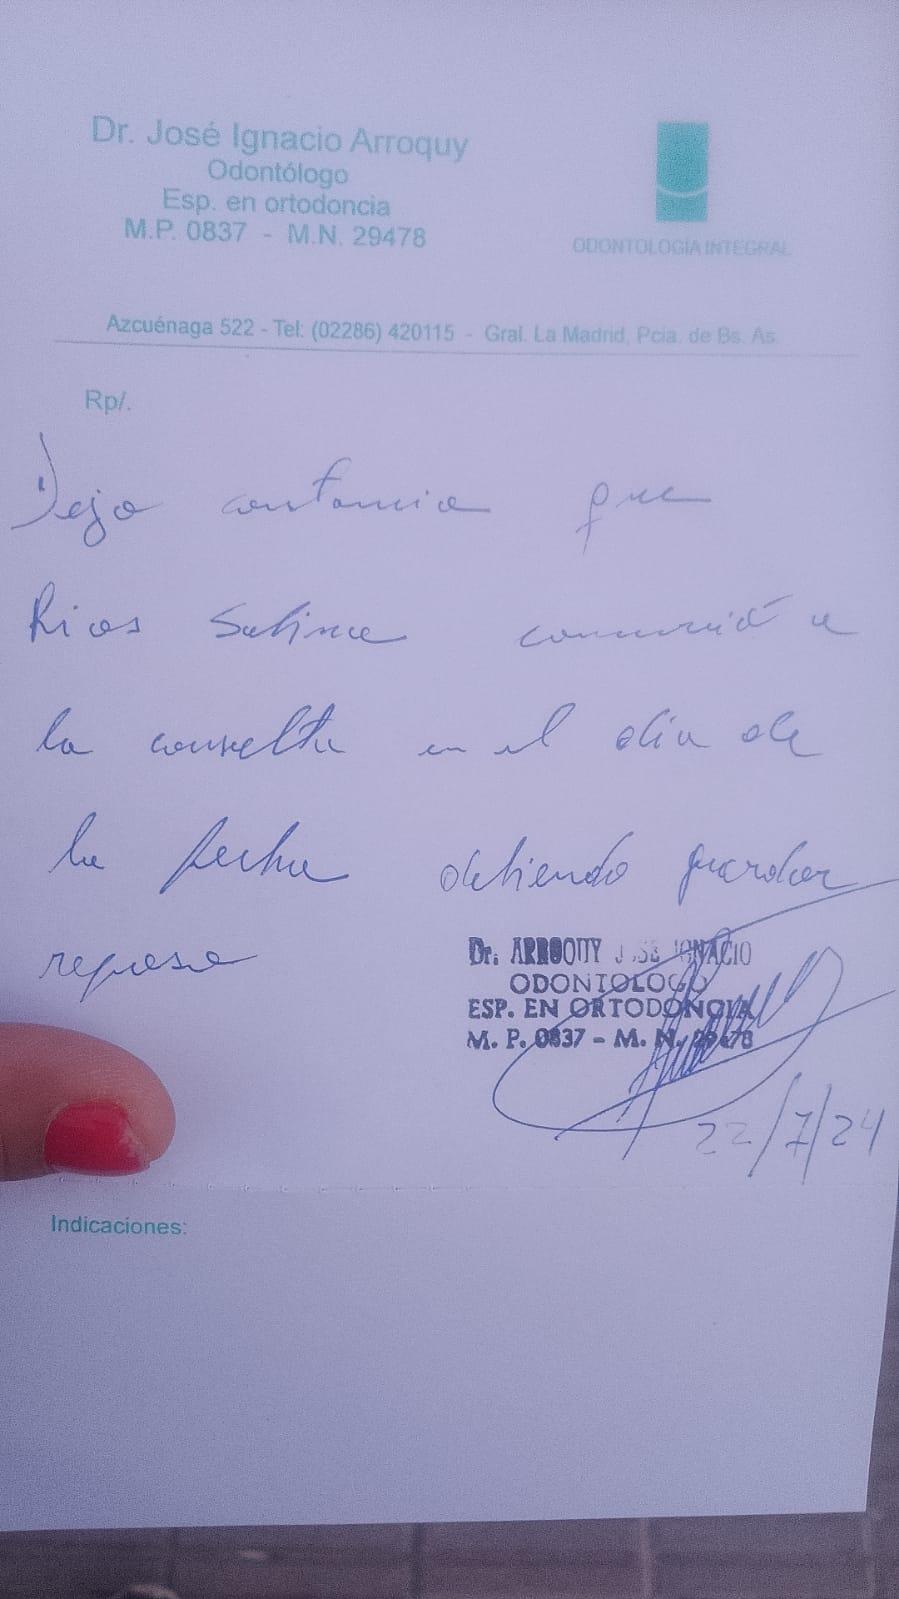 Dr. José Ignacio Arroquy
Odontólogo
Esp. en ortodoncia
M.P. 0837 - M.N. 29478
ODONTOLOGÍA INTEGRAL
Azcuénaga 522 - Tel: (02286) 420115 - Gral. La Madrid, Pcia. de Bs. As.
Rp/.
Dejo constancia que
Rios Sabina concurrió a
la consulta en el día de
la fecha debiendo guardar
reposo
Dr. ARROQUY JOSE IGNACIO
ODONTOLOGO
ESP. EN ORTODONCIA
M. P. 0837 - M. N. 29478
22/7/24
Indicaciones: